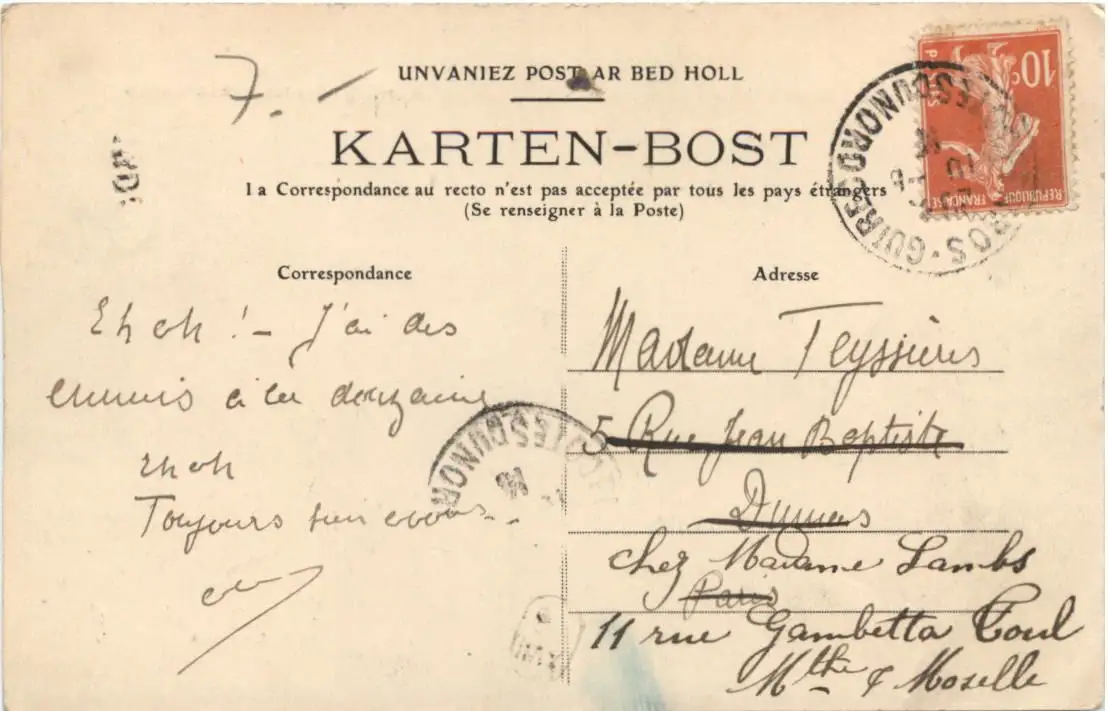 7.-
UNVANIEZ POST AR BED HOLL
10c
POSTES
REPUBLIQUE FRANCAISE
KARTEN-BOST
La Correspondance au recto n'est pas acceptée par tous les pays étrangers
(Se renseigner à la Poste)
PERROS-GUIREC COTES DU NORD
Correspondance
Eh eh ! - J'ai des
à la douzaine
eh eh
Toujours
COTES DU NORD
Adresse
Madame Teyssières
5 Rue Jean Baptiste
Dumas
chez Madame Lambs
Paris
11 rue Gambetta Toul
Mthe & Moselle